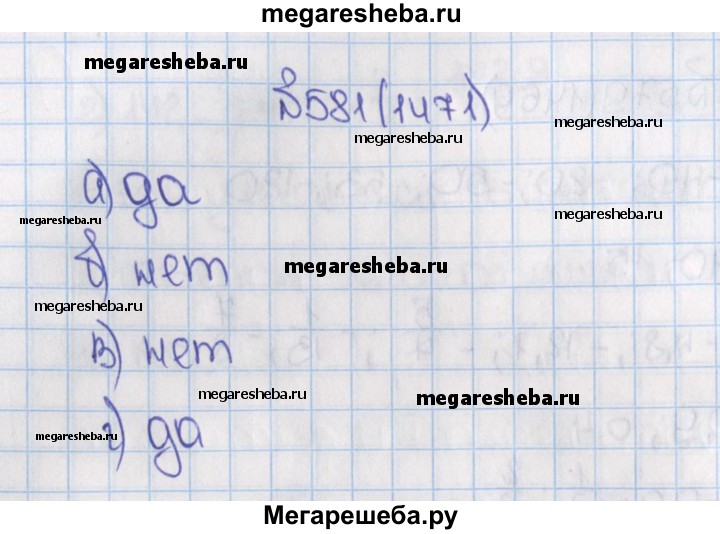 megaresheba.ru
megaresheba.ru
№581(1471)
megaresheba.ru
megaresheba.ru
а) да
megaresheba.ru
megaresheba.ru
б) нет
megaresheba.ru
megaresheba.ru
в) нет
megaresheba.ru
megaresheba.ru
г) да
megaresheba.ru
Мегарешеба.ру